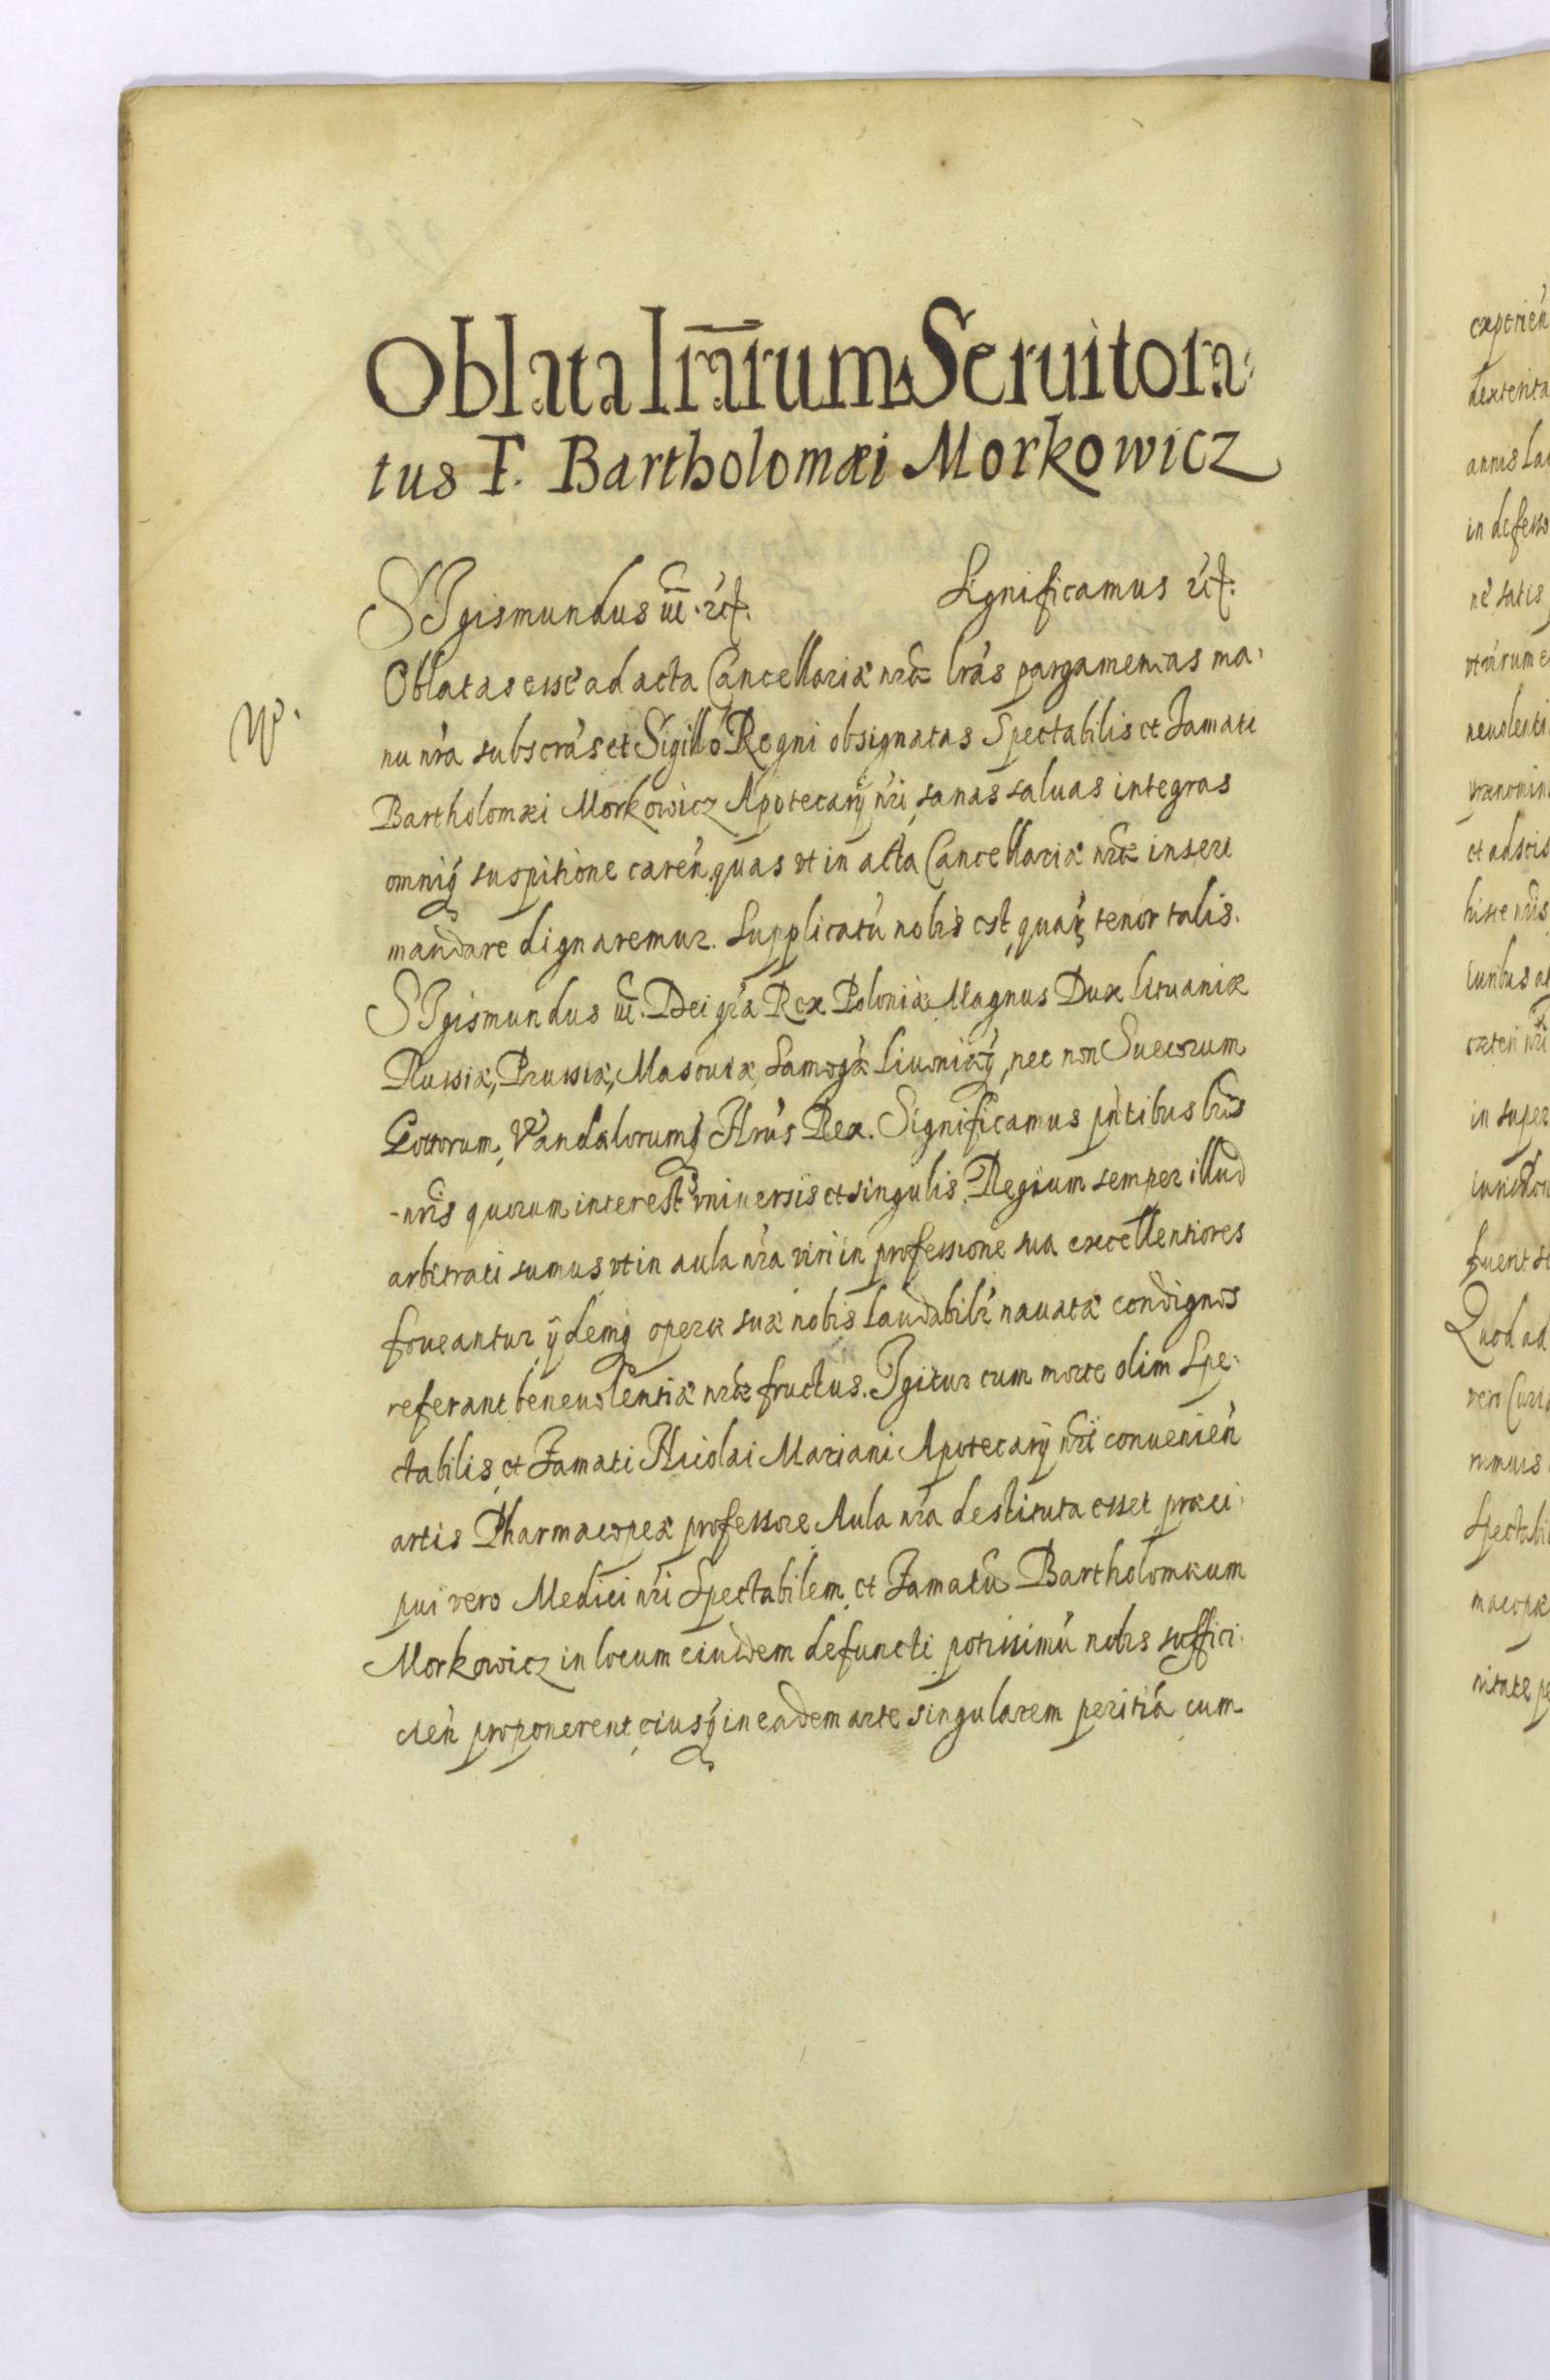 Oblata lrarum Seruitora
tus F. Bartholomæi Morkowicz
SIgismundus III. etc. Significamus etc.
Oblatas esse ad acta Cancellariæ nræ lras pargamenias ma
W.
nu nra subscras et Sigillo Regni obsignatas Spectabilis et Famati
Bartholomæi Morkowicz Apotecarÿ nri, sanas saluas integras
omniq suspitione caren, quas vt in acta Cancellariæ nræ inseri
mandare dignaremur. Supplicatu nobis est, quar tenor talis.
SIgismundus III. Dei gra Rex Poloniæ Magnus Dux Lituaniæ
Russiæ, Prussiæ, Masouiæ, Samogæ Liuoniæq, nec non Suecorum
Gottorum, Vandalorumq Hrus Rex. Significamus pntibus lris
nris quorum interest vniuersis et singulis. Regium semper illud
arbitrati sumus, vt in aula nra viri in professione sua excellentiores
foueantur ÿdemq operæ suæ nobis laudabilr nauatæ condignos
referant beneuolentiæ nræ fructus. Igitur cum morte olim Spe
ctabilis et Famati Nicolai Mariani Apotecarÿ nri conuenien
artis Pharmacopeæ professore Aula nra destituta esset præci
pui vero Medici nri Spectabilem et Famatu Bartholomæum
Morkowicz in locum eiusdem defuncti potissimu nobis suffici
cien proponerent, eiusq in eadem arte singularem peritia cum
experien
dexterita
annis
in defesso
ne satis
neuolenti
et adscis
hisce nris
in super
fuerit
Quod ad
vero
Spectabi
macopæ